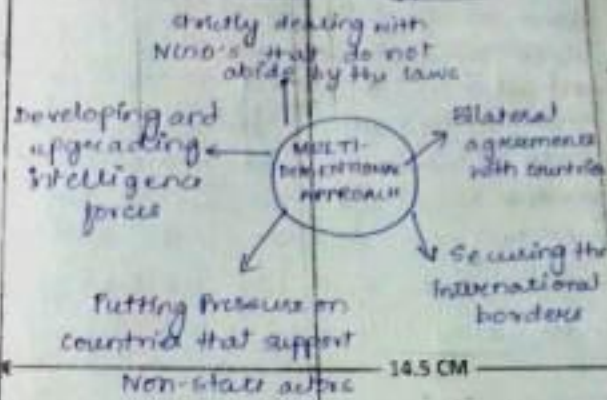 strictly dealing with
NGO's that do not
abide by the laws
Developing and
upgrading
intelligence
forces
MULTI-
DIMENTIONAL
APPROACH
Bilateral
agreements
with countries
Securing the
International
borders
Putting Pressure on
countries that support
Non-state actors
14.5 CM